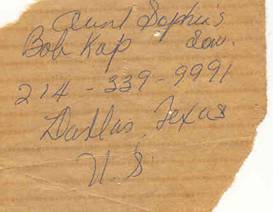 Aunt Sophia's
Bob Kap Son.
214-339-9991
Dallas, Texas
U.S